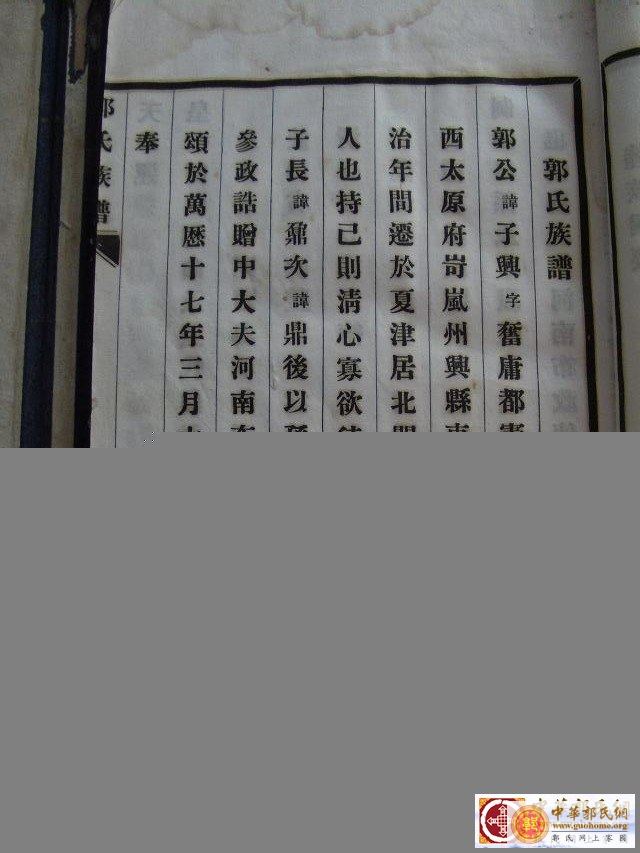 郭氏族譜
郭公諱子興字奮庸都憲
西太原府岢嵐州興縣東
治年間遷於夏津居北關
人也持己則清心寡欲
子長諱鼐次諱鼎後以孫
參政誥贈中大夫河南布
頌於萬歷十七年三月
奉
天
皇
氏族譜
中華郭氏網
www.guohome.org
郭氏网上家园